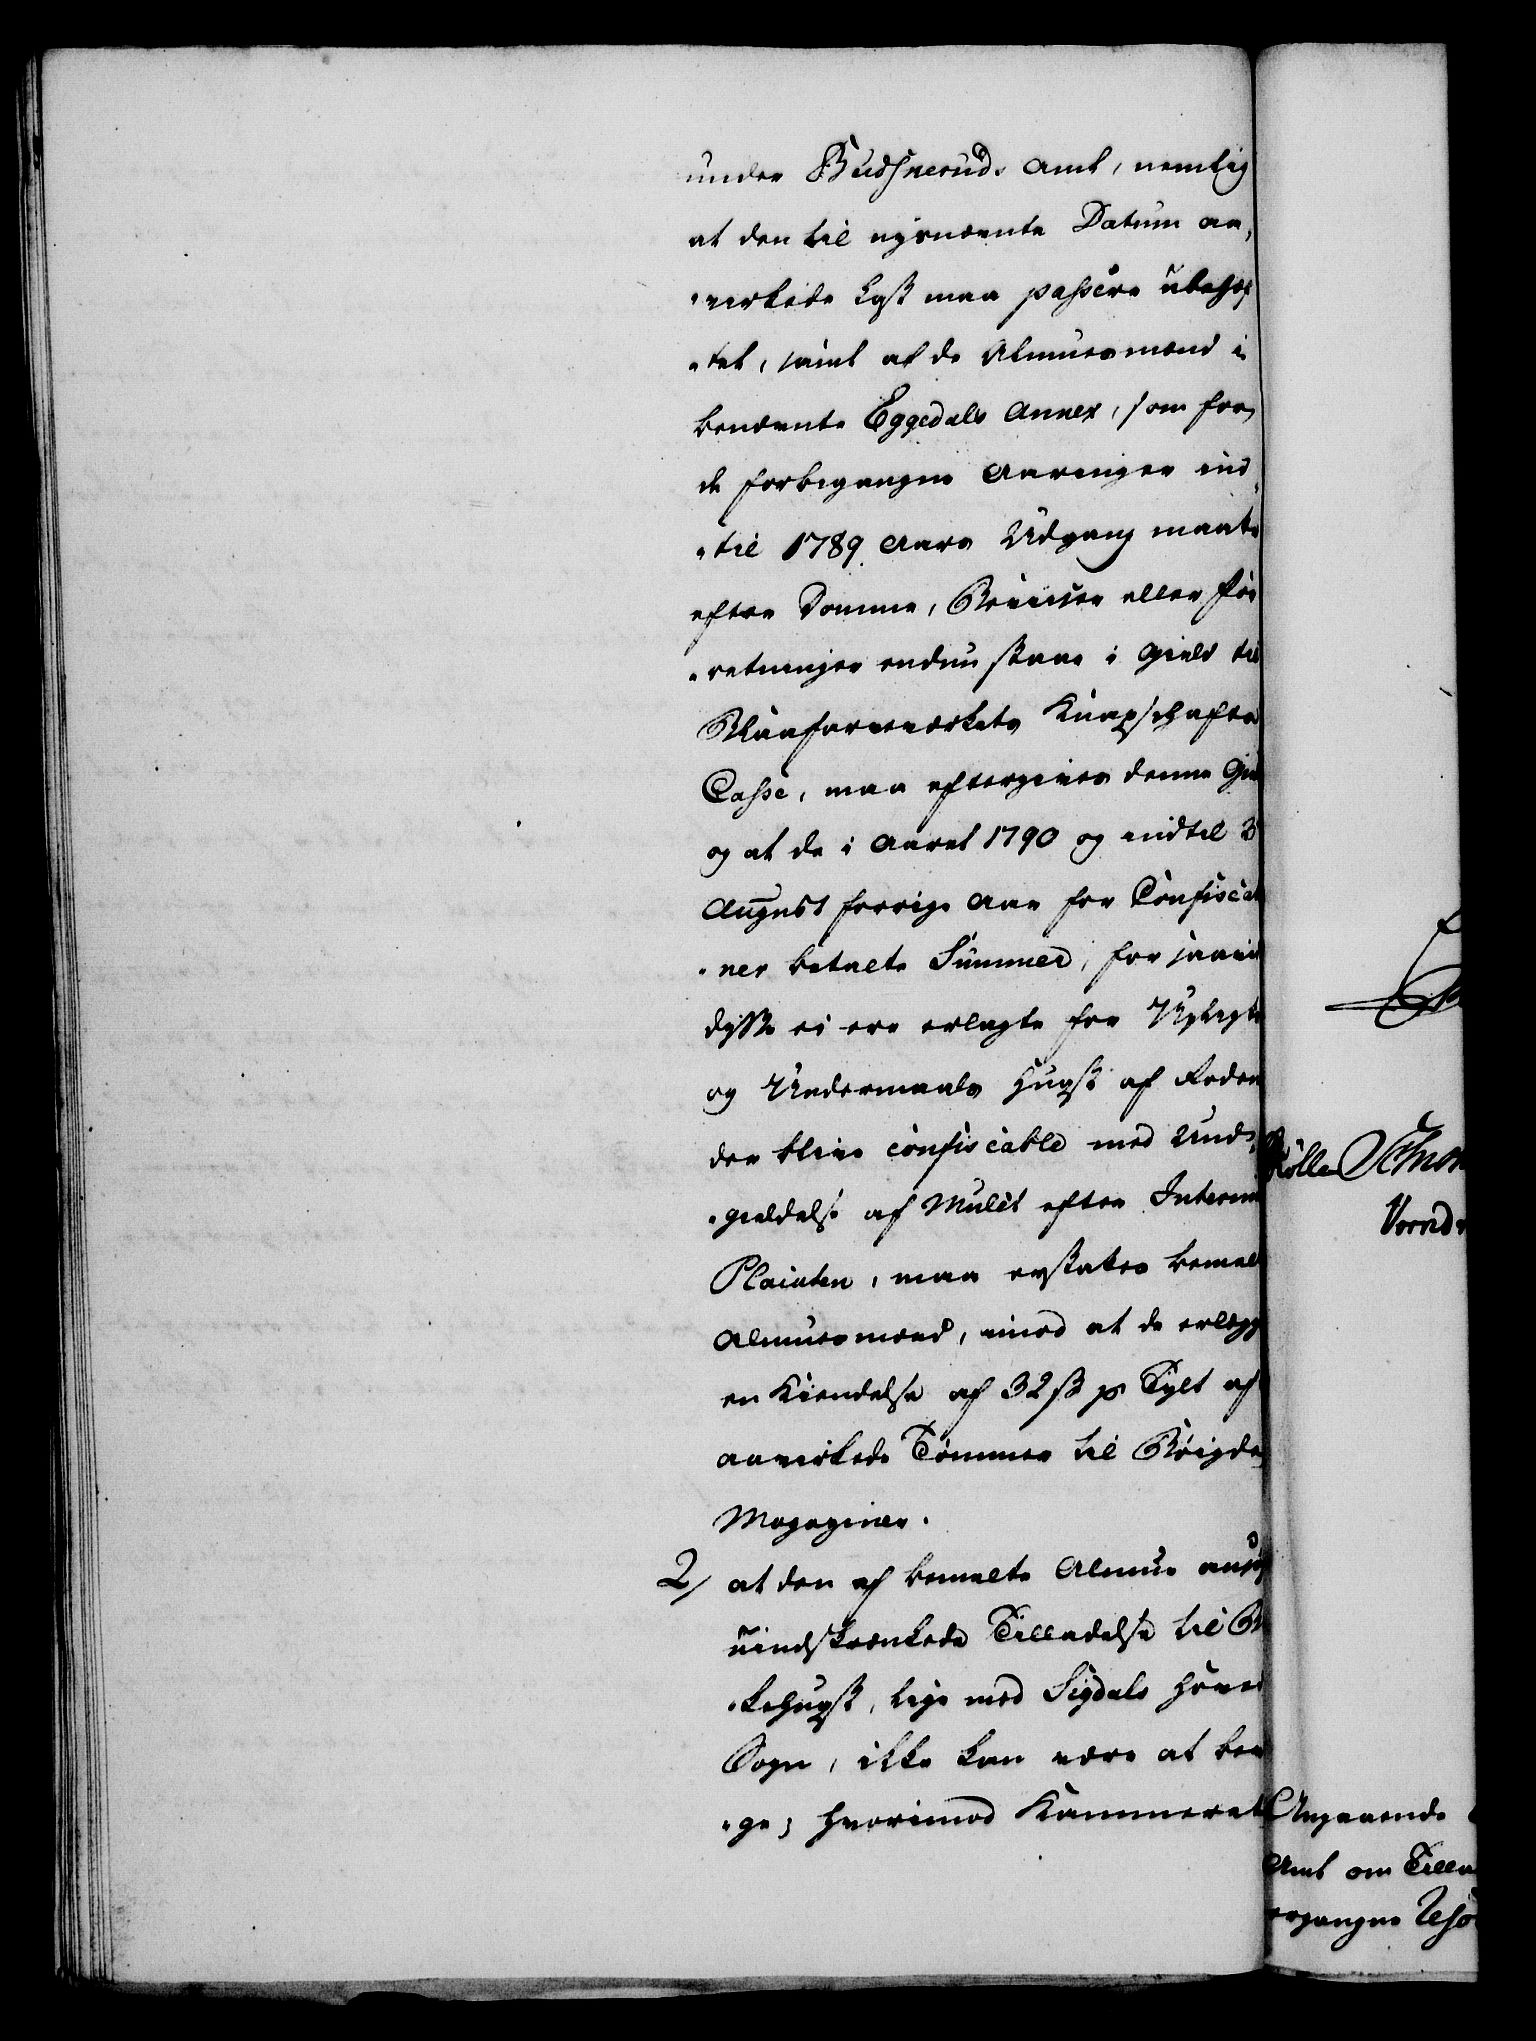 under Budsneruds Amt, nemlig
at den til nysnævnte Datum aa„
„virkede Last maa passere ubehæf
„tet, samt at de Almuesmænd i
benævnte Eggedals Annex, som for
de forbigangne Aaringer ind„
„til 1789 Aars Udgang maatte
efter Domme, Beviiser eller For
„retninger endnu staae i Gield til
Blaafarveværkets Knapschafts
Casse, maa eftergives denne Gie
og at de i Aaret 1790 og indtil 3
August forrige Aar for Confiscat
„ner betalte Summer, for saavidt
disse ei ere erlagte for Uplagte
og Undermaals Hugst af Roden
der blive confiscable med Und„
„gieldelse af Mulct efter Interims
Placaten, maa erstattes bemeldte
Almuesmænd, imod at de erlægge
en Kiendelse af 32 ß pr Tylt af
aavirkede Tømmer til Bøigde
Magaziner.
2/ at den af bemelte Almue ansøgt
uindskrænkede Tilladelse til Br
„kehugst, lige med Sigdals Hoved
Sogn, ikke kan være at bev
„ge; hvorimod Kammeret
Angaaende
Amt om Tilla
ergangne Uesø